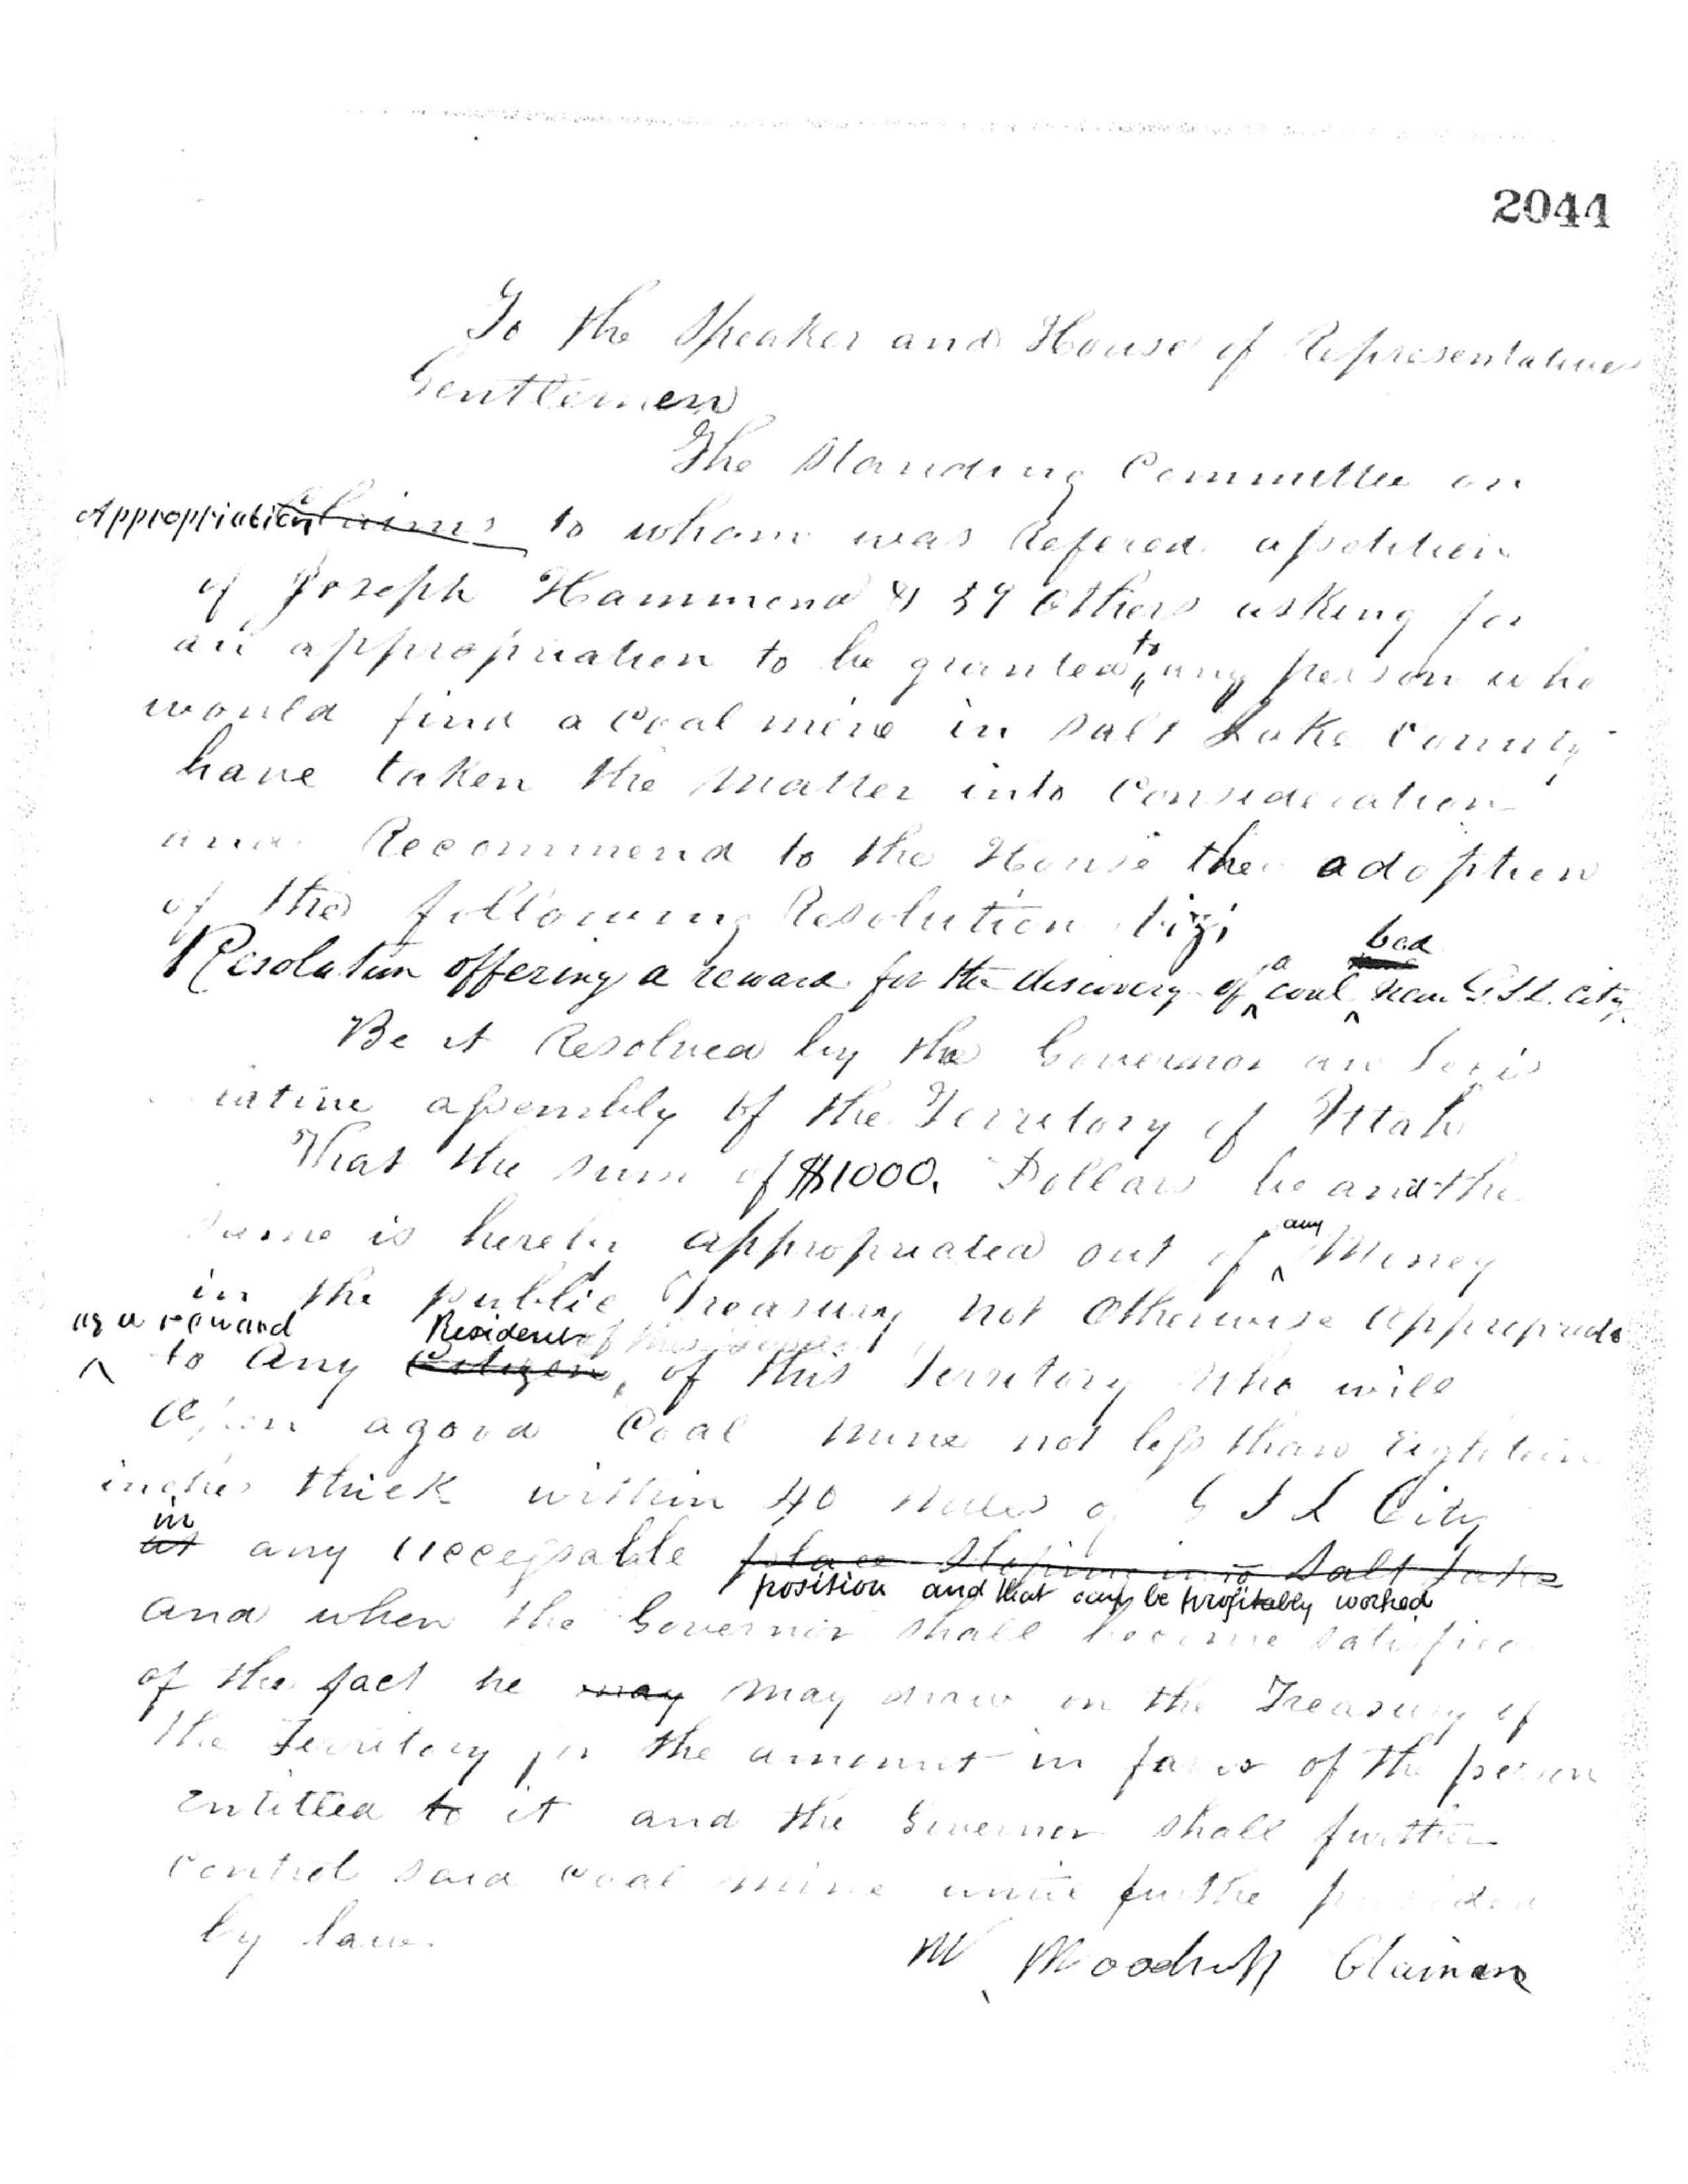 2044
To the Speaker and House of Representatives
Gentlemen
The Standing Committee on
Appropriation Claims to whom was Refered a petition
of Joseph Hammond & 39 Others asking for
an appropriation to be granted to any person who
would find a Coal mine in Salt Lake County
have taken the Matter into Consideration
and Recommend to the House the adoption
of the following Resolution Viz;
Resolution offering a reward for the discovery of a coal bed near G. S. L. City.
Be it Resolved by the Governor an Legis
lative assembly of the Territory of Utah
That the sum of $1000. Dollars be and the
Same is hereby appropriated out of any Money
in the public Treasury not Otherwise appropriate
as a reward to Any Citizen Resident of this Territory who will
Open a good Coal mine not less than Eighteen
inches thick within 40 miles of G S L City
at in any accessable place Sloping into Salt Lake
position and that can be profitably worked
and when the Governor shall become satisfied
of the fact he may may draw on the Treasury of
the Territory for the amount in favor of the person
Entitled to it and the Governor shall further
Control said coal mine until furthe provided
by law.
W Woodruff Chairman